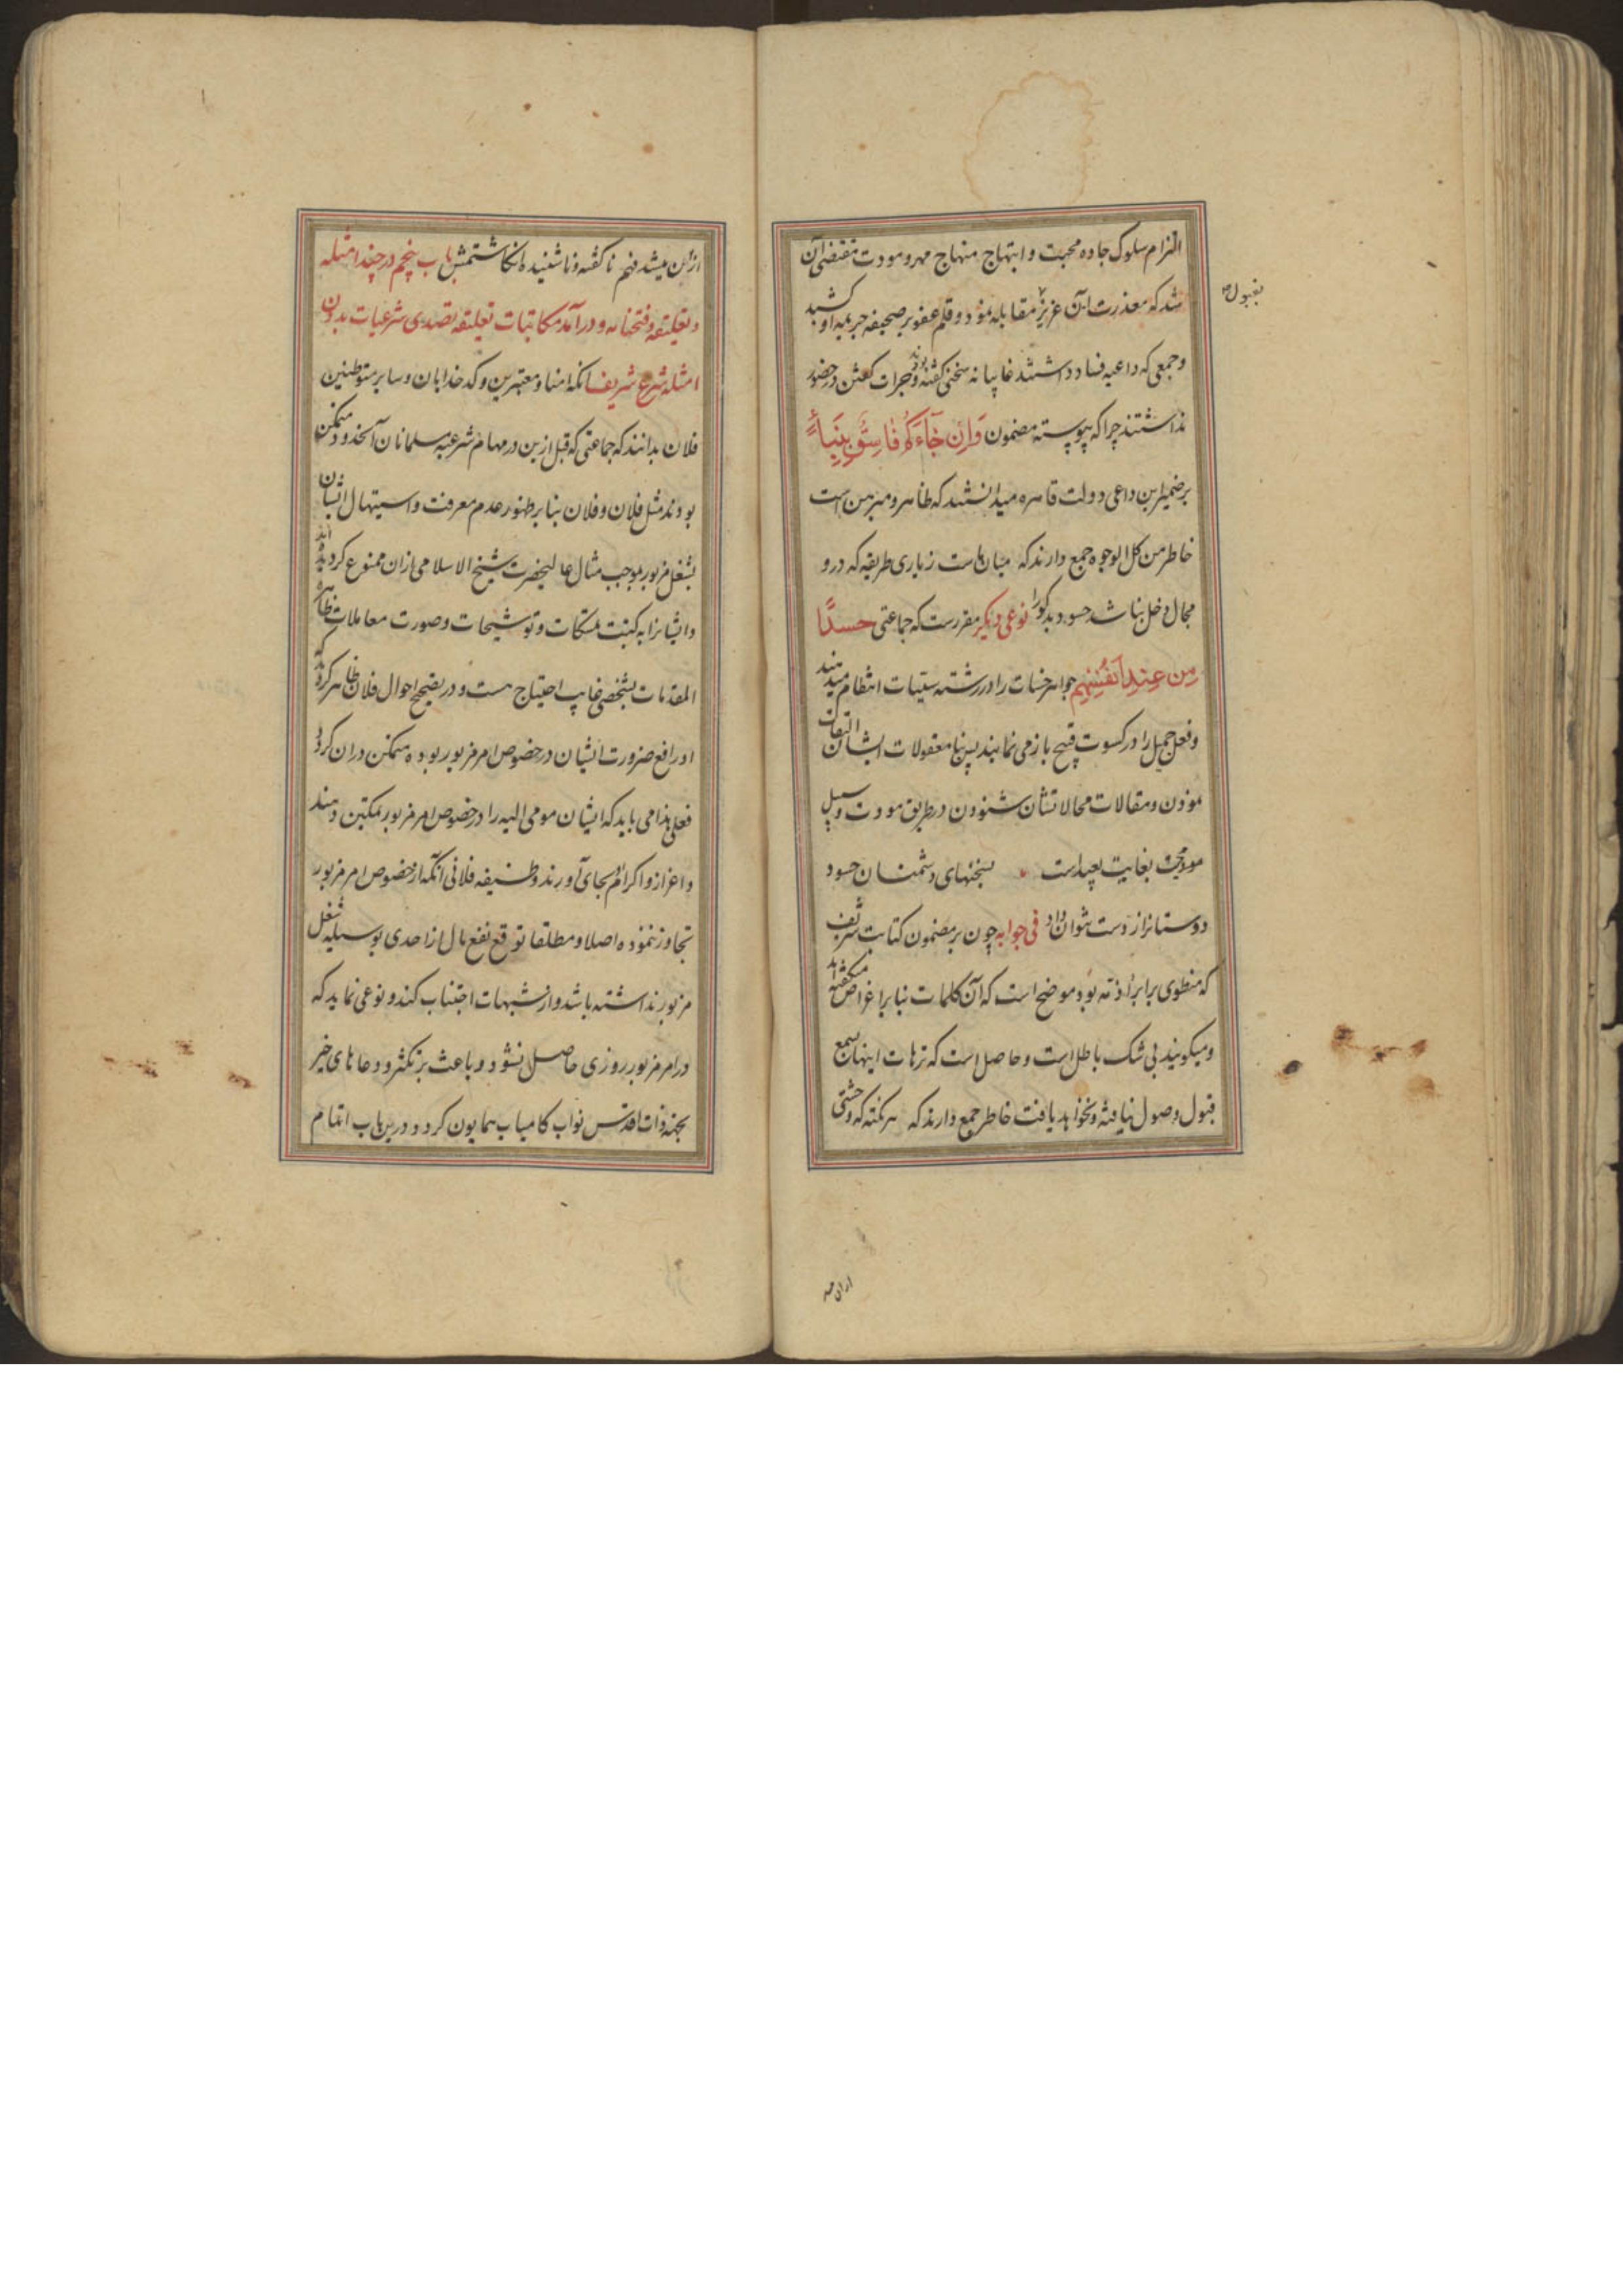 التزام سلوک جاده محبت و ابتهاج منهاج مهر و مودت مقتضی آن
شد که معذرت آن عزیز مقابله نمود و قلم عفو بر صحیفه جریمه او کشید
بقبول
و جمعی که داعیه فساد داشتند غایبانه سخنی گفته بودند و جرات گفتن در حضور
نداشتند چرا که پیوسته مضمون وَاِن جَآءَکُم فَاسِقٌ بِنَبَاءٍ
بر ضمیر این داعی دولت قاهره میدانستند که ظاهر و مبرهن است
خاطر من کل الوجوه جمع دارند که میان ماست زیاری طریقه که درو
مجال دخل نباشد حسود بدگو را نوعی دیگر مقررست که جماعتی حسدًا
مِن عِندِ اَنفُسِهِم جواهر حسنات را در رشته سیئات انتظام میدهند
و فعل جمیل را در کسوت قبیح باز می نمایند پس بنا معقولات ایشان التفات
نمودن و مقالات محالاتشان شنودن در طریق مودت و سبیل
مودت بغایت بعید است بسخنهای دشمنان حسود
دوستانرا ز دست نتوان داد فی جوابه چون بر مضمون کتابت شریف
که منطوی برابراء ذمه بود موضح است که آن کلمات بنا بر اغراض میگفته اند
و میگویند بی شک باطل است و حاصل است که ترهات اینها بسمع
قبول وصول نیافته و نخواهد یافت خاطر جمع دارند که هر نکته که وحشتی
ازان میشد فهم ناگفته و ناشنیده انگاشتمش باب پنجم در چند امثله
و تعلیقه و فتحنامه و درآمد مکاتبات تعلیقه تصدی شرعیات بدون
امثله شرع شریف آنکه امنا و معتبرین و کدخدایان و سایر متوطنین
فلان بدانند که جماعتی که قبل ازین در مهام شرعیه مسلمانان آنحدود متمکن
بودند مثل فلان و فلان بنابر ظهور عدم معرفت و استیهال ایشان
بشغل مزبور بموجب مثال عالیحضرت شیخ الاسلامی ازان ممنوع گردیده اند
و ایشانرا به کتبت تمسکات و توشیحات و صورت معاملات ظاهره
المقدمات بشخصی غایب احتیاج هست و در تصحیح احوال فلان ظاهر گردید که
او رافع ضرورت ایشان در خصوص امر مزبور بوده متمکن دران گردد
فعلی هذا می باید که ایشان مومی الیه را در خصوص امر مزبور تمکین دهند
و اعزاز و اکرام بجای آورند وظیفه فلانی آنکه از خصوص امر مزبور
تجاوز ننموده اصلا و مطلقا توقع نفع مال از احدی بوسیله شغل
مزبور نداشته باشد و از شبهات اجتناب کند و نوعی نماید که
در امر مزبور روزی حاصل نشود و باعث بر تکثر و دعاهای خیر
بجهة ذات اقدس نواب کامیاب همایون گردد و درین باب اتمام